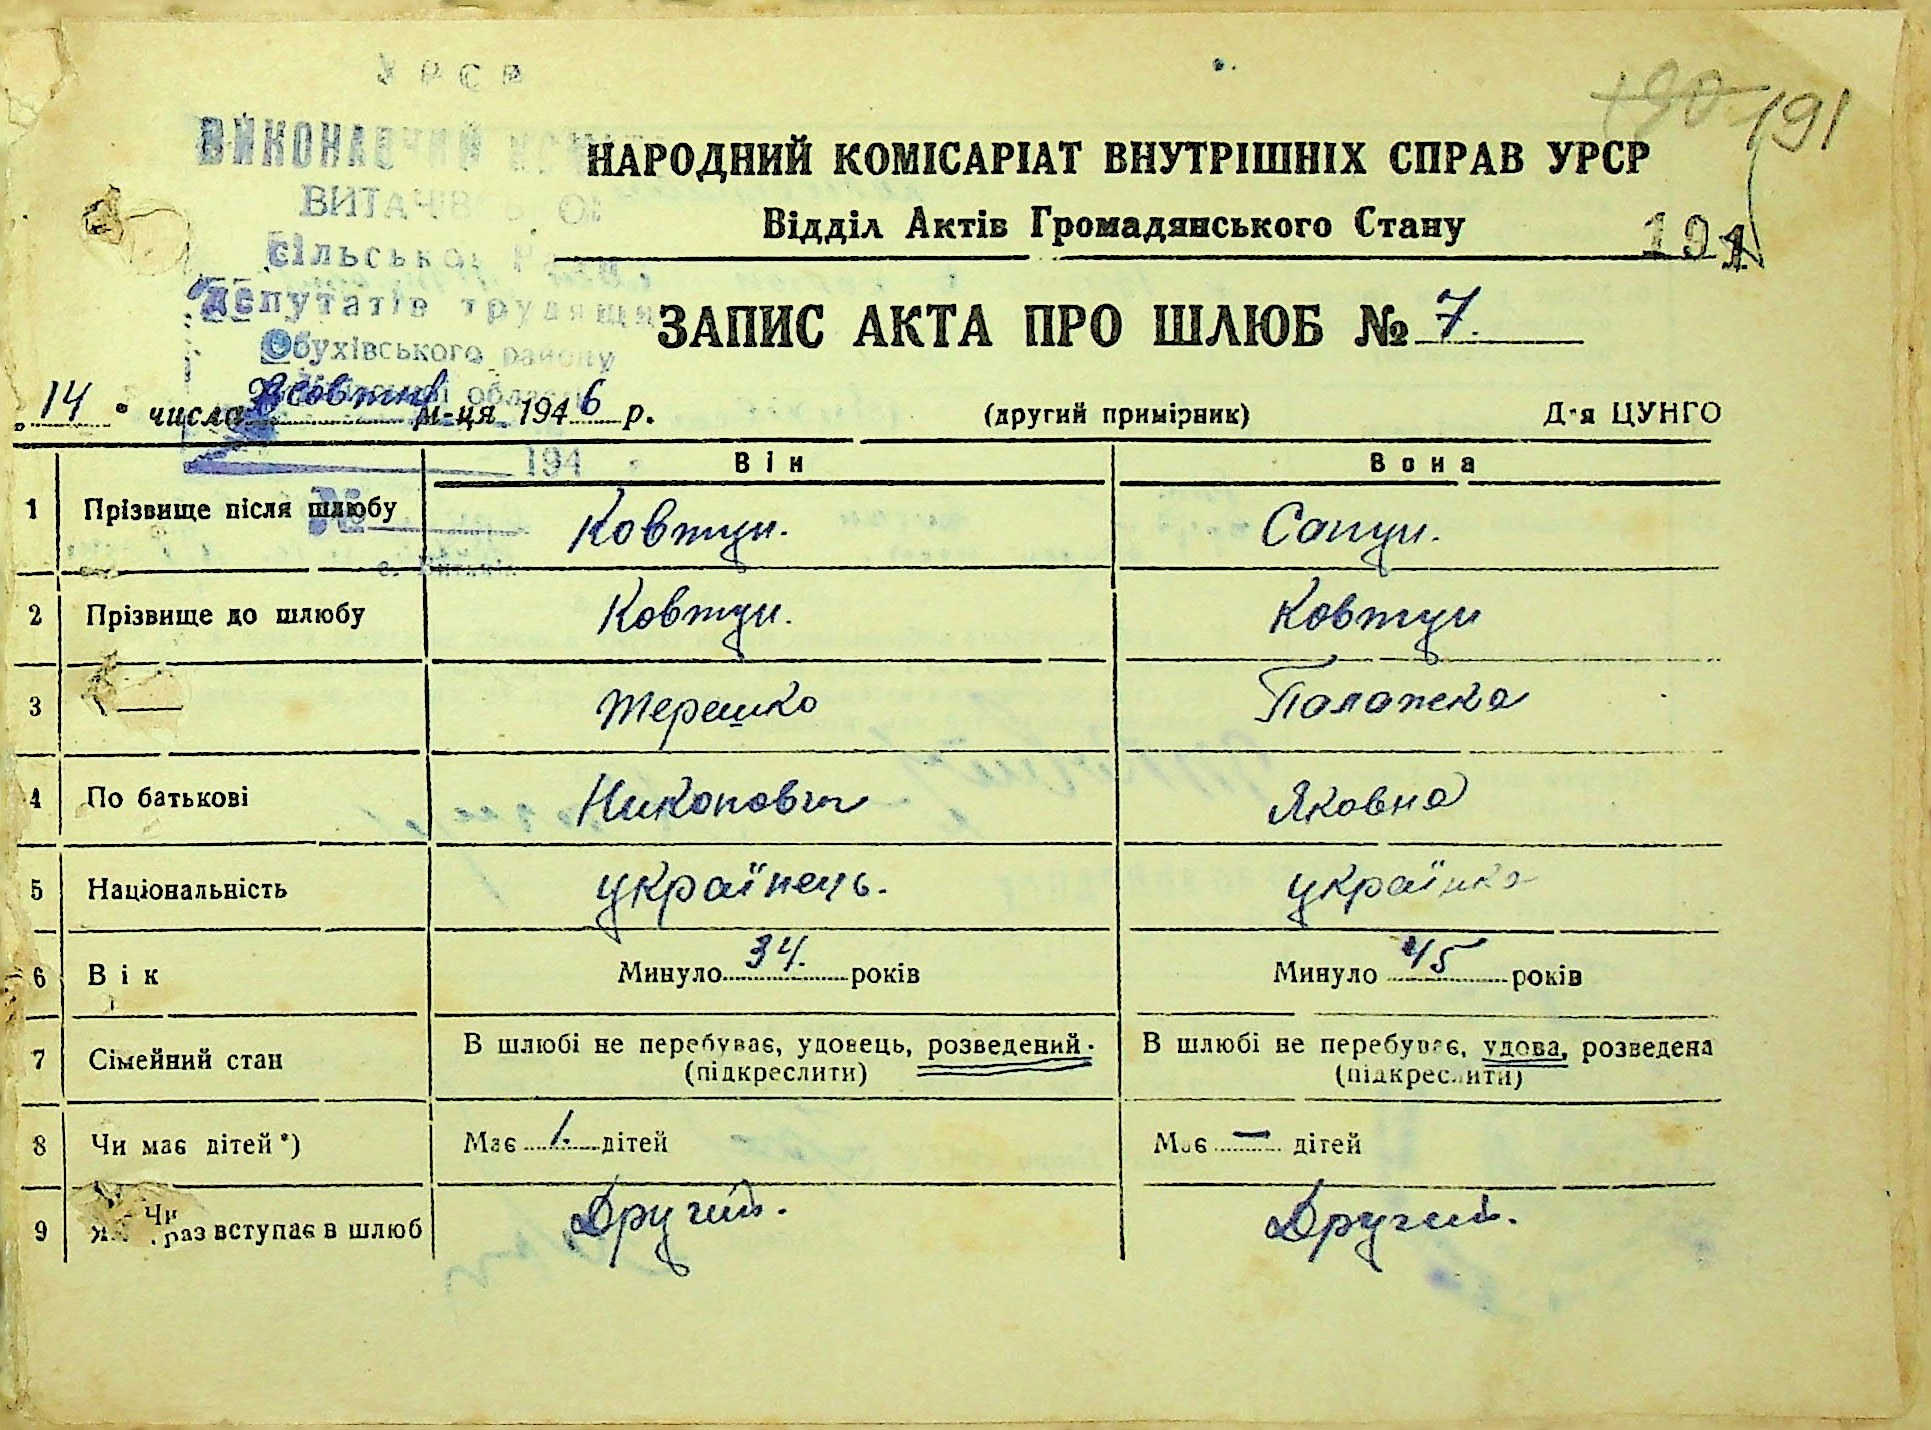 УРСР
190 191
ВИКОНАВЧИЙ КОМІТЕТ
НАРОДНИЙ КОМІСАРІАТ ВНУТРІШНІХ СПРАВ УРСР
ВИТАЧІВСЬКОЇ
Відділ Актів Громадянського Стану
191
сільської Ради
депутатів трудящих
ЗАПИС АКТА ПРО ШЛЮБ № 7.
Обухівського району
Київської області
„14“ числа Жовтня м-ця 1946 р.
(другий примірник)
Д-я ЦУНГО
194
Він
Вона
1 Прізвище після шлюбу Ковтун. Сапун.
№
с. Витачів
2 Прізвище до шлюбу Ковтун. Ковтун
3 Терешко Палажка
4 По батькові Никонович Яковна
5 Національність українець. українка
6 Вік Минуло 34. років Минуло 45 років
7 Сімейний стан В шлюбі не перебуває, удовець, розведений. В шлюбі не перебуває, удова, розведена
(підкреслити) (підкреслити)
8 Чи має дітей*) Має 1. дітей Має — дітей
9 раз вступає в шлюб Другий. Другий.